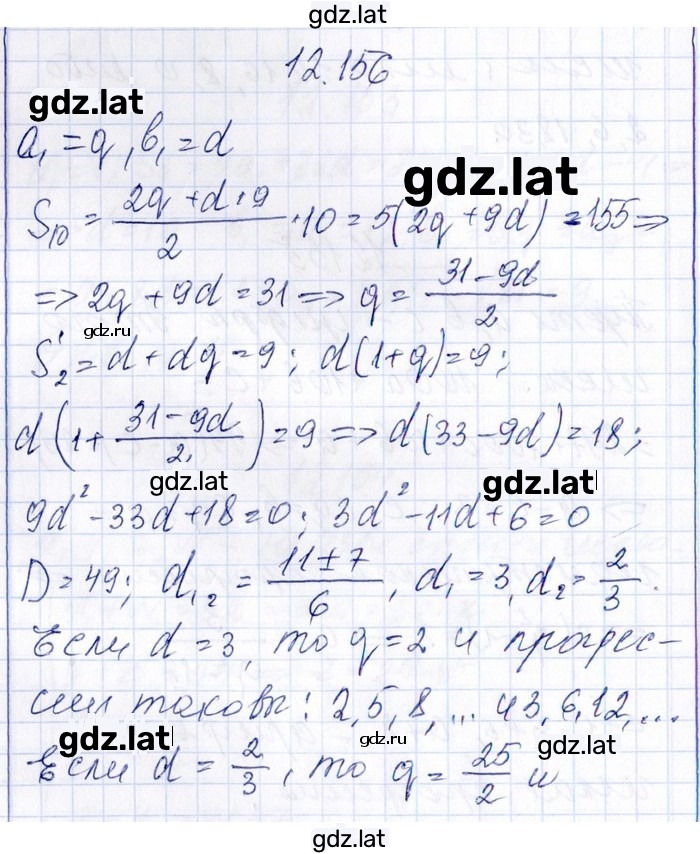 gdz.lat
12.156
gdz.lat
a₁ = q, b₁ = d
gdz.lat
S₁₀ = (2q + d · 9)/2 · 10 = 5(2q + 9d) = 155 =>
=> 2q + 9d = 31 => q = (31 - 9d)/2
gdz.ru
S'₂ = d + dq = 9; d(1 + q) = 9;
d(1 + (31 - 9d)/2) = 9 => d(33 - 9d) = 18;
gdz.lat gdz.lat
9d² - 33d + 18 = 0; 3d² - 11d + 6 = 0
D = 49; d₁,₂ = (11 ± 7)/6, d₁ = 3, d₂ = 2/3.
Если d = 3, то q = 2 и прогрес-
сии таковы: 2, 5, 8, ... и 3, 6, 12, ...
gdz.lat gdz.ru gdz.lat
Если d = 2/3, то q = 25/2 и
gdz.lat